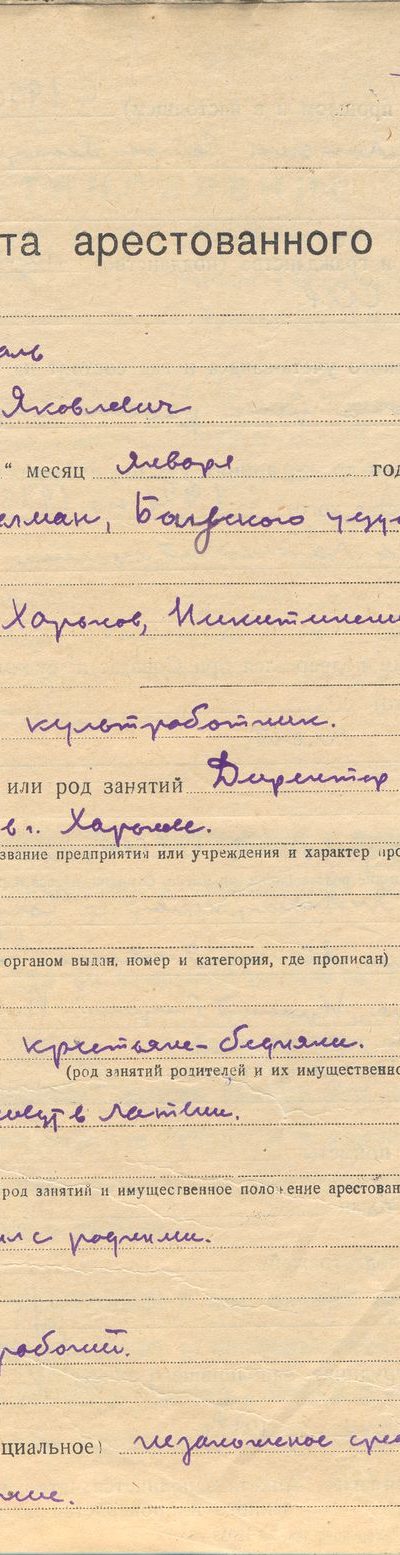 та арестованного
аль
Яковлевич
“ месяц января год
Харьков,
культработник.
или род занятий Директор
в г. Харькове.
звание предприятия или учреждения и характер про
органом выдан, номер и категория, где прописан)
крестьяне-бедняки.
(род занятий родителей и их имущественно
живут в Латвии.
род занятий и имущественное положение арестован
ил с родными.
рабочий.
циальное) незаконченое сред